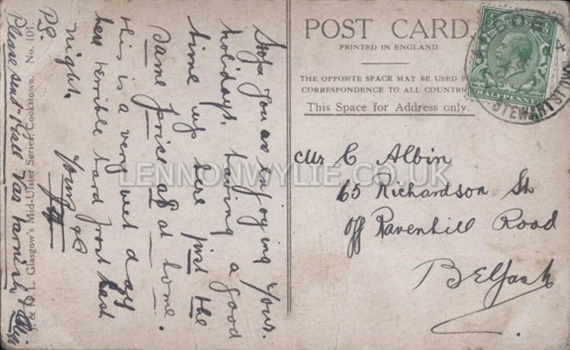 POST CARD
PRINTED IN ENGLAND
THE OPPOSITE SPACE MAY BE USED FOR
CORRESPONDENCE TO ALL COUNTRIES
This Space for Address only.
HALFPENNY
STEWARTSTOWN
Hope you are enjoying your
holidays, having a good
time up here just the
same price as at home.
This is a very wet day
here terrible hard frost last
night.
Yours
PS
Please send
& D. L. Glasgow's Mid-Ulster Series, Cookstown. No. 101
Mr C Albin
65 Richardson St
Off Ravenhill Road
Belfast
LENNONWYLIE.CO.UK